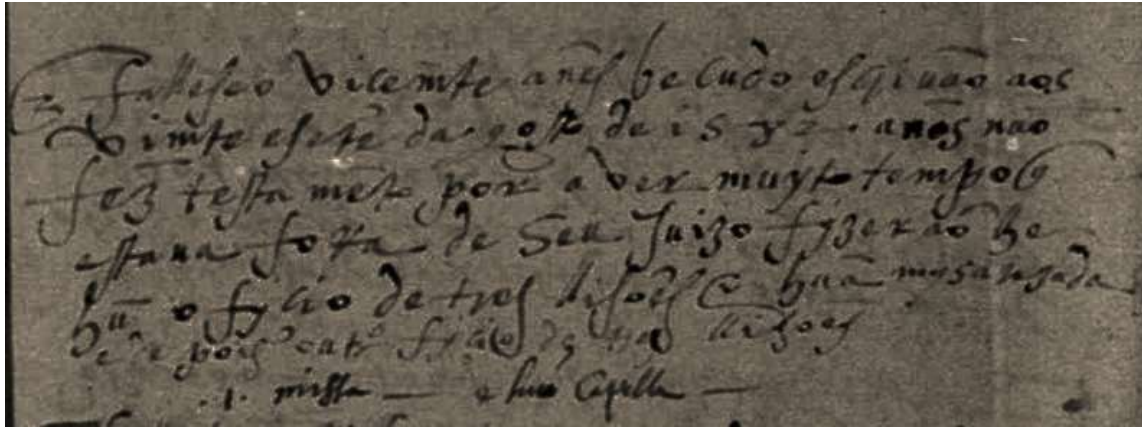 falleseo Vicemte anēs beludo esqivão aos
Vimte e sete da gosto de 1592 anos não
fez testamēto por aver muyto tempo q
estava fora de Seu Juizo fyzerão lhe
hū ofyçio de tres lisoēs e hūa misa rezada
e de pois outro fyçio de tres lizoēs
.1. missa — e hūa Capella —